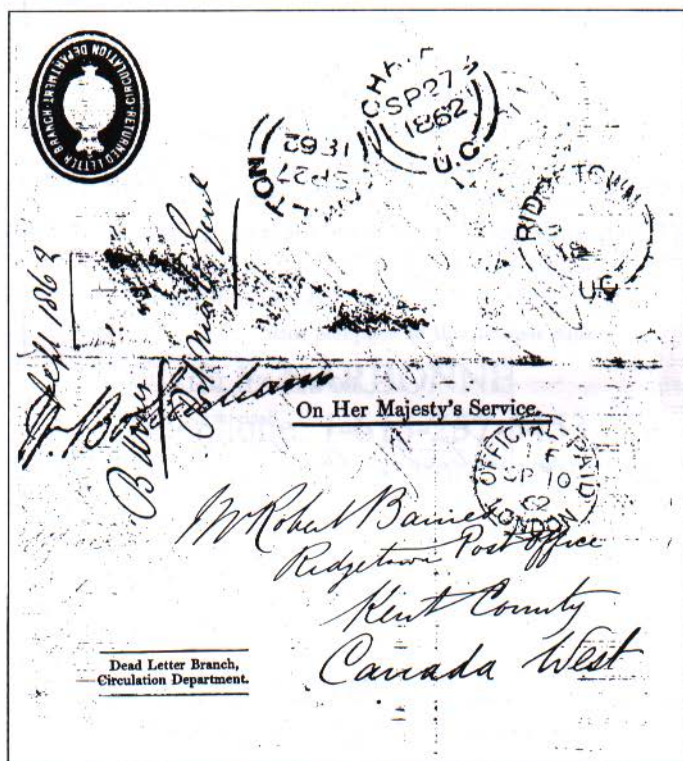 CIRCULATION DEPARTMENT · RETURNED LETTER BRANCH
SP 27
1862
U.C
LTON
SP 27
1862
RIDGETOWN
UC
Sept 1862
On Her Majesty's Service.
OFFICIAL PAID
SP 10
62
LONDON
Mr Robert Barnes
Ridgetown Post Office
Kent County
Canada West
Dead Letter Branch,
Circulation Department.